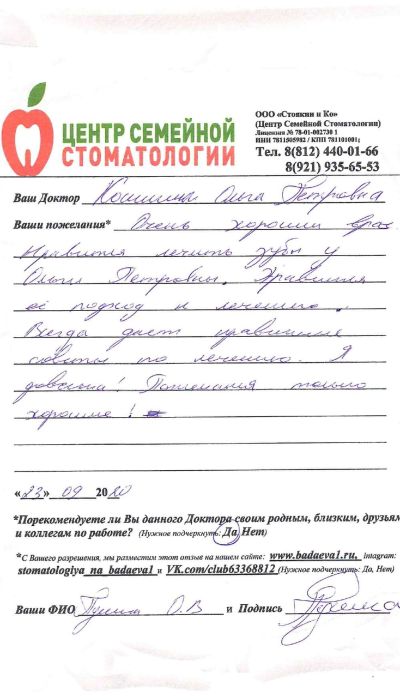 ЦЕНТР СЕМЕЙНОЙ
СТОМАТОЛОГИИ
ООО «Стоякин и Ко»
(Центр Семейной Стоматологии)
Лицензия № 78-01-002730 1
ИНН 7811505982 / КПП 781101001;
Тел. 8(812) 440-01-66
8(921) 935-65-53
Ваш Доктор Ольга Петровна
Ваши пожелания* Очень хороший врач
Нравится лечить зубы у
Ольги Петровны. Нравится
её подход к лечению.
Всегда даёт правильные
советы по лечению. Я
довольна! Пожелания только
хорошие!
«23» 09 2020
*Порекомендуете ли Вы данного Доктора своим родным, близким, друзьям
и коллегам по работе? (Нужное подчеркнуть: Да, Нет)
*С Вашего разрешения, мы разместим этот отзыв на нашем сайте: www.badaeva1.ru, intagram:
stomatologiya_na_badaeva1 и VK.com/club63368812 (Нужное подчеркнуть: Да, Нет)
Ваши ФИО О.В и Подпись